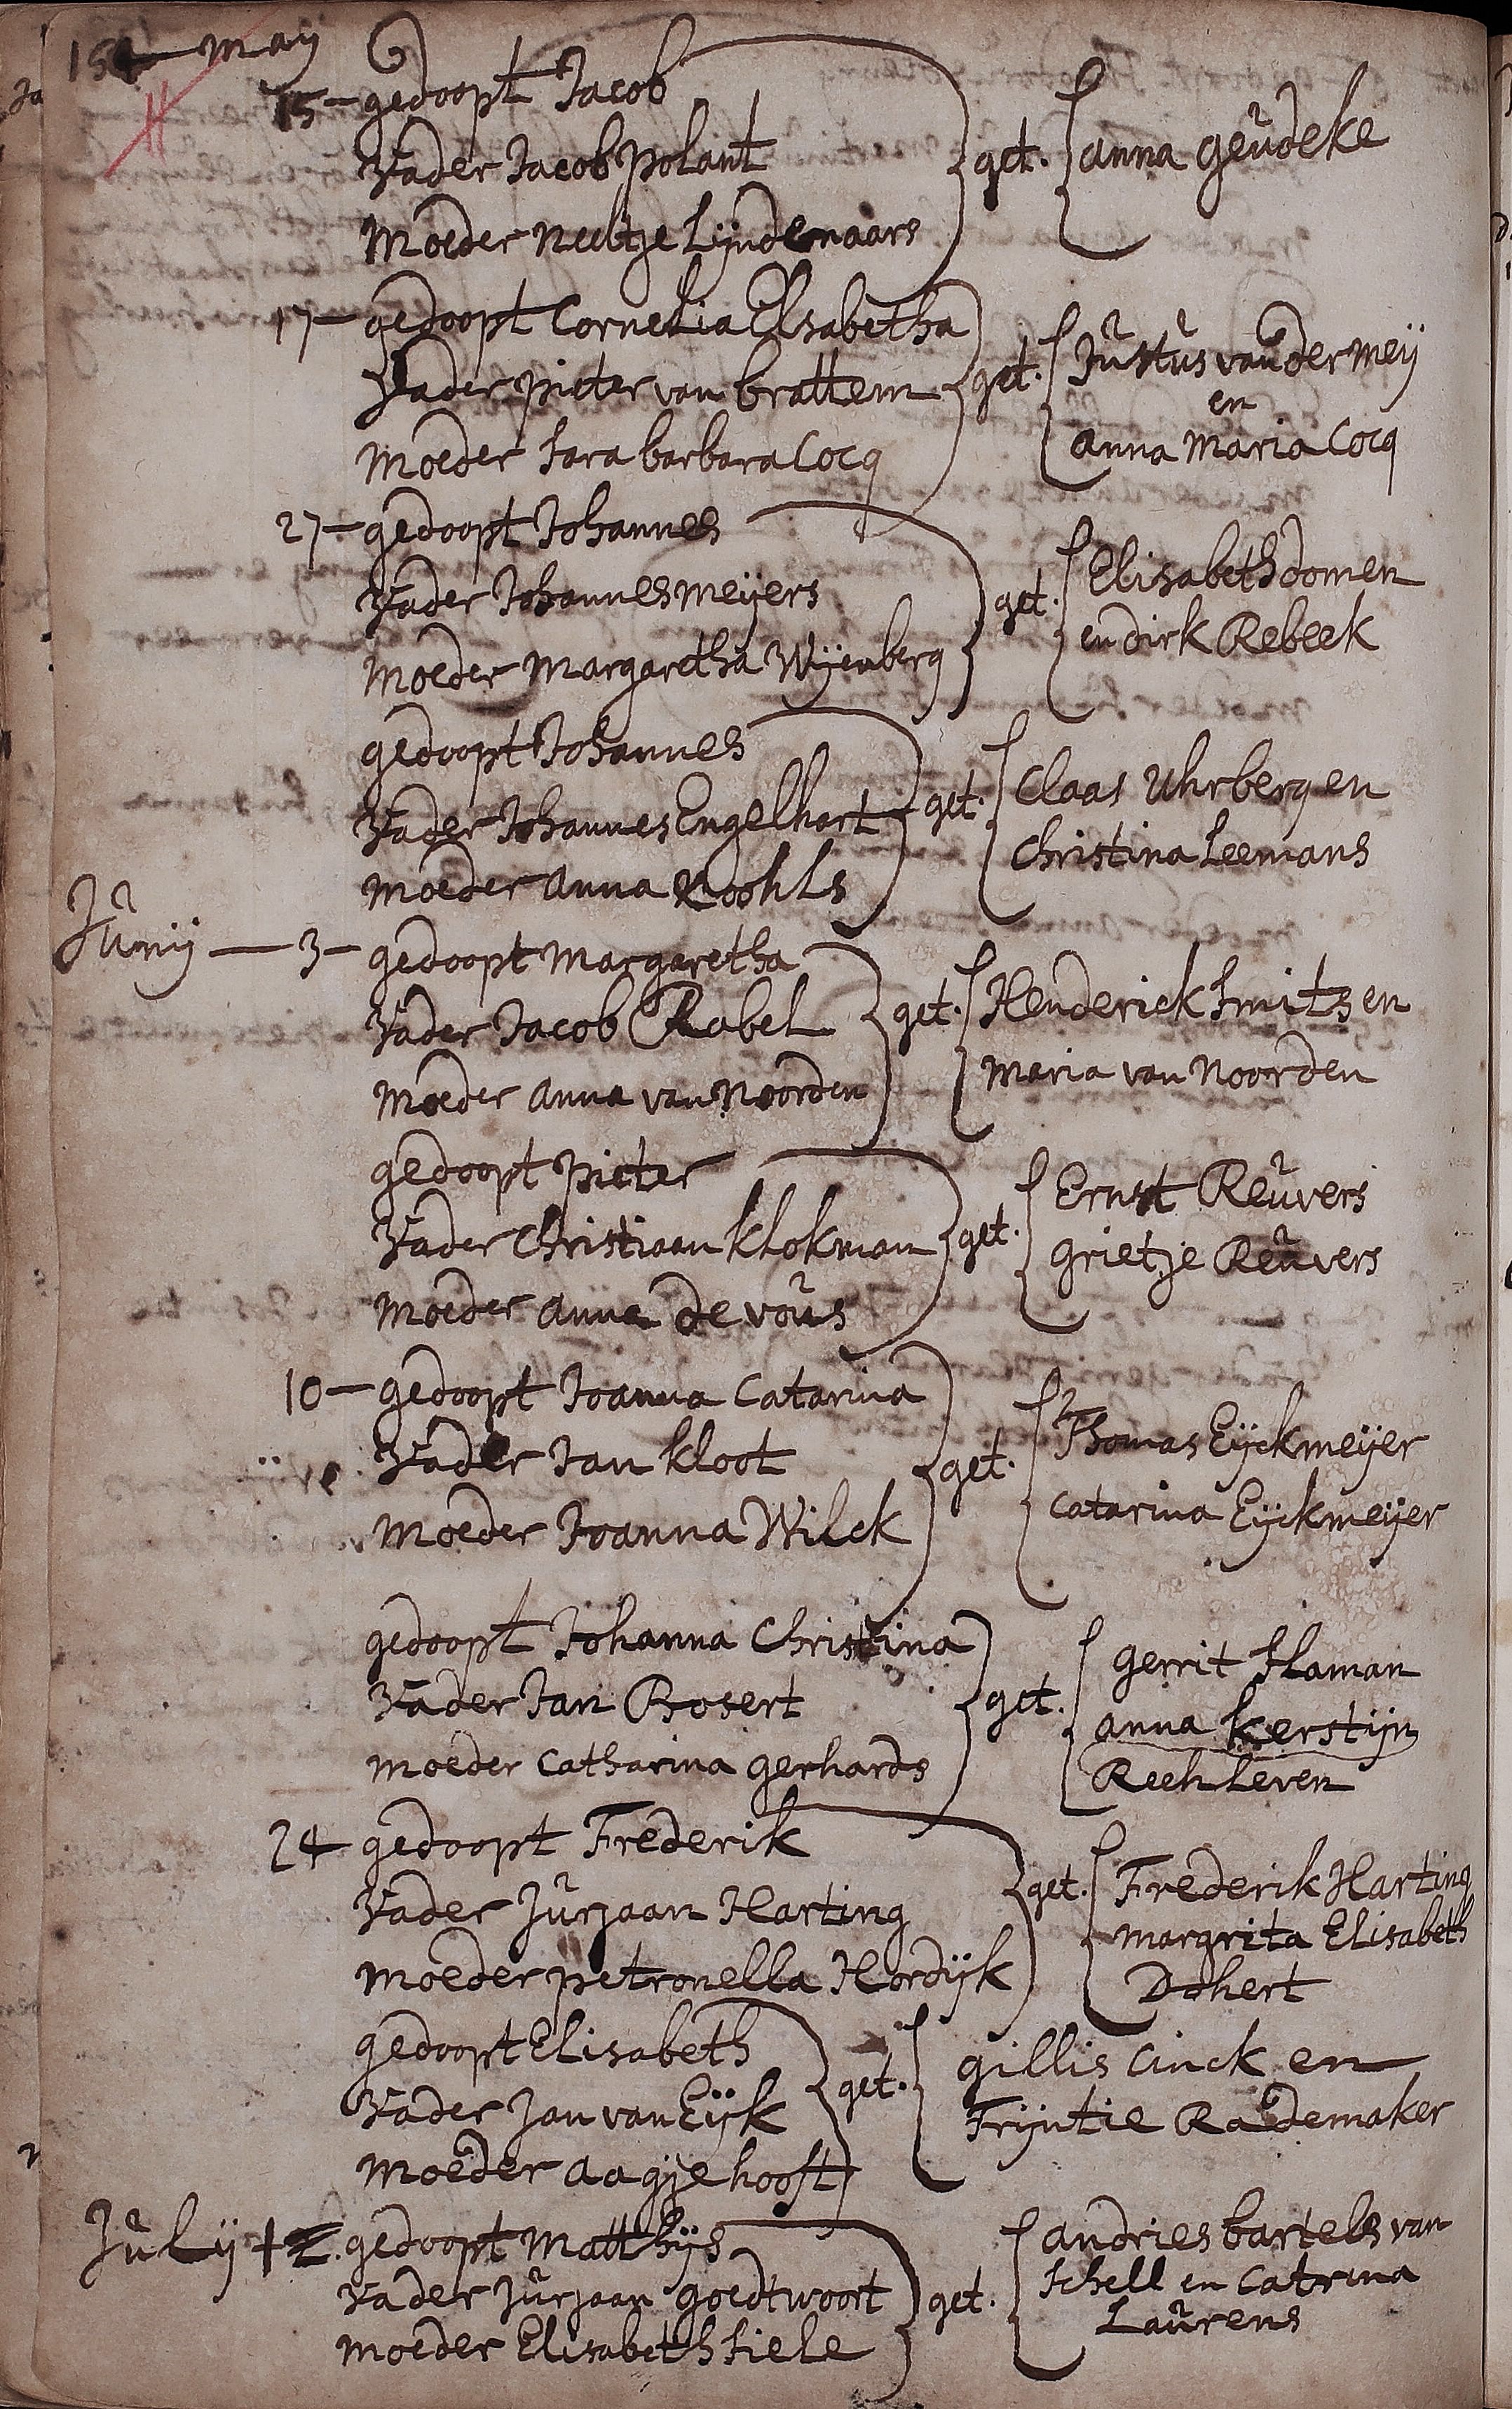 154 may
15 - gedoopt Jacob
Vader Jacob polant
Moeder neeltje Lijndenaars
get. anna geudeke
17 - gedoopt Cornelia Elsabetha
Vader pieter van brattem
Moeder Sara barbara Cocq
get. Justus van der meij
en
anna Maria Cocq
27 - gedoopt Johannes
Vader Johannes meijers
Moeder Margaretha Wijenberg
get. Elisabeth domen
en dirk Rebeek
gedoopt Johannes
Vader Johannes Engelhart
Moeder anna Koohls
get. Claas Uhrberg en
Christina Leemans
Junij - 3 - gedoopt Margaretha
Vader Jacob Rabel
Moeder anna van Noorden
get. Henderick Smits en
Maria van Noorden
gedoopt pieter
Vader Christiaan Klokman
Moeder anna de vous
get. Ernst Reuvers
grietje Reuvers
10 - gedoopt Joanna Catarina
Vader Jan Kloot
Moeder Joanna Wilck
get. Thomas Eijckmeijer
Catarina Eijckmeijer
gedoopt Johanna Christina
Vader Jan Bosert
Moeder Catharina gerhards
get. gerrit Haman
anna kerstijn
Reehleven
24 gedoopt Frederik
Vader Jurjaan Harting
Moeder petronella Hordijk
get. Frederik Harting
margrita Elisabeth
Dohert
gedoopt Elisabeth
Vader Jan van Eijk
Moeder aagje hooft
get. gillis Cinck en
Frijntie Rademaker
Julij 1 gedoopt Matthijs
Vader Jurjaan goedtwoort
Moeder Elisabeth Siele
get. andries bartels van
Schell en Catrina
Laurens